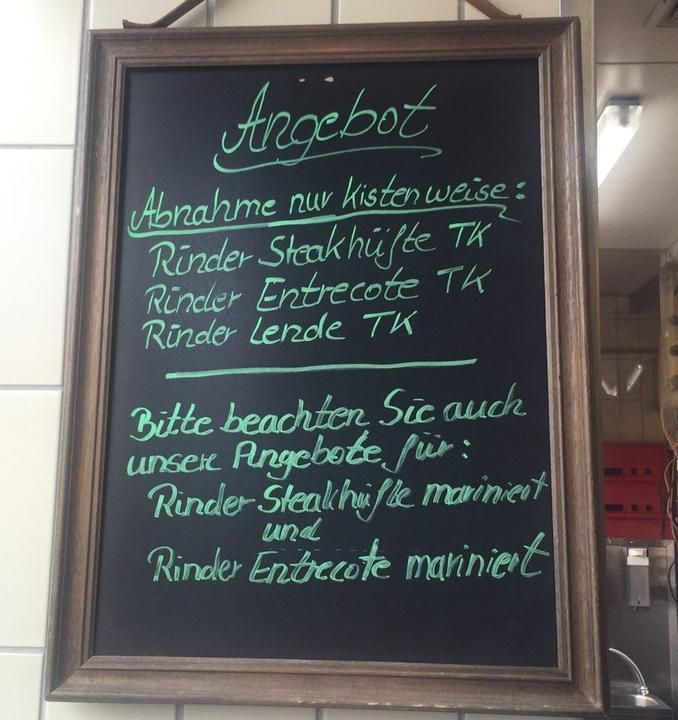 Angebot
Abnahme nur Kistenweise:
Rinder Steakhüfte TK
Rinder Entrecote TK
Rinder Lende TK
Bitte beachten Sie auch
unsere Angebote für:
Rinder Steakhüfte mariniert
und
Rinder Entrecote mariniert